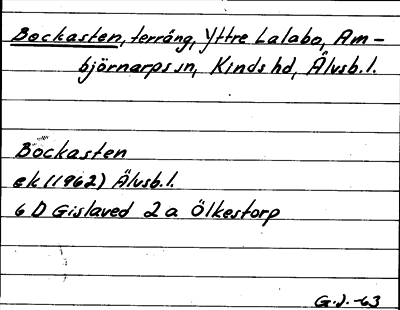 Bockasten, terräng, Yttre Lalabo, Am-
björnarps sn, Kinds hd, Älvsb. l.
Bockasten
ek (1962) Älvsb. l.
6 D Gislaved 2 a Ölkestorp
G. J. -63